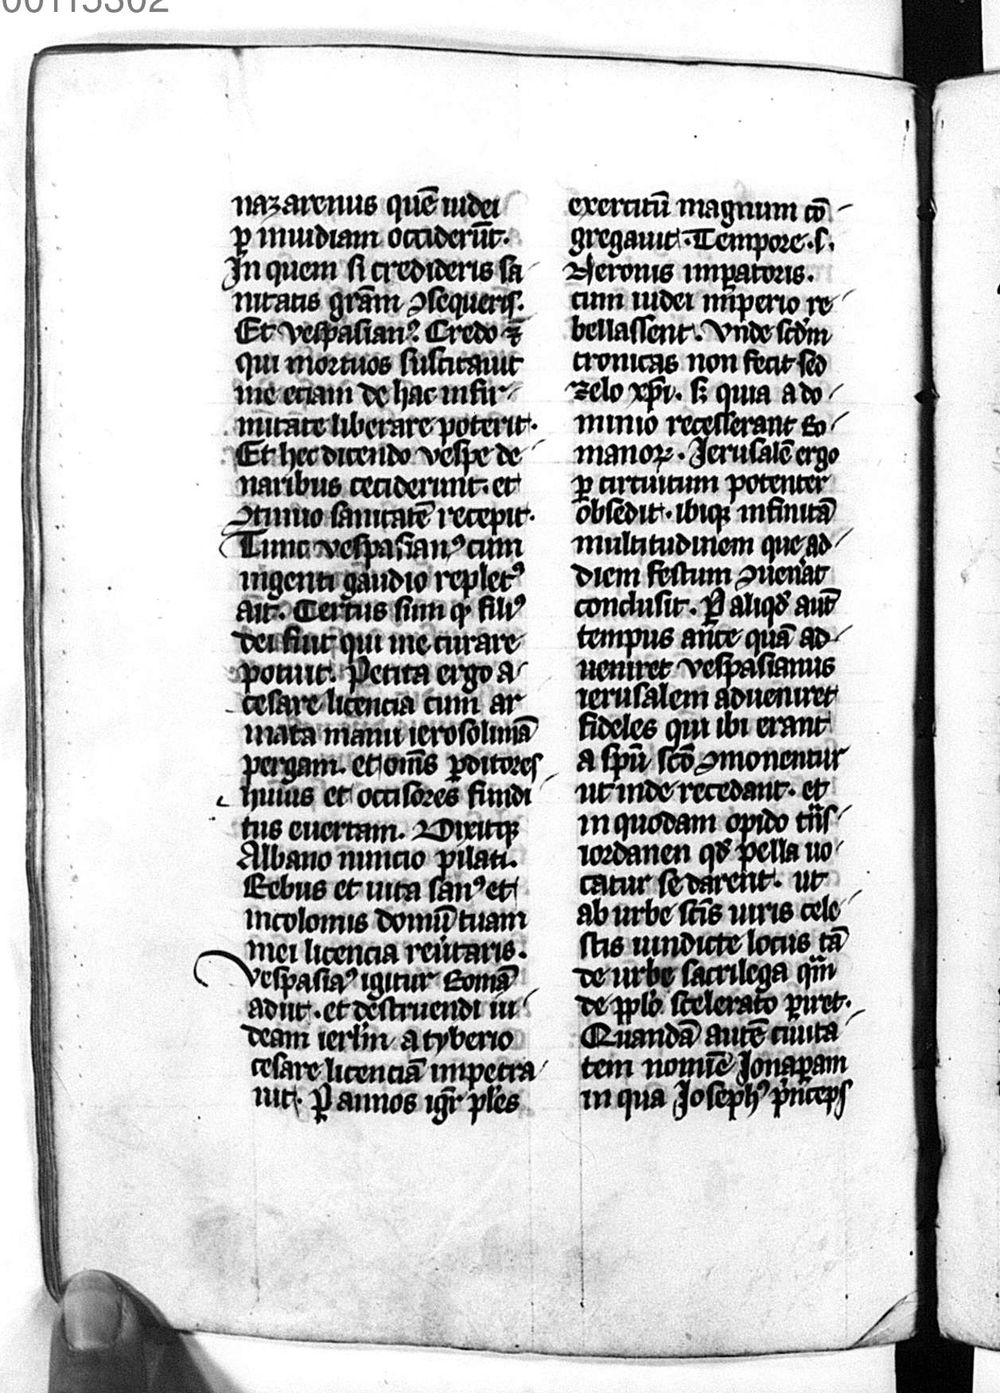 00115302
nazarenus quē iudei
ꝑ inuidiam occiderūt.
In quem si credideris sa
nitatis grām ꝯsequeris.
Et vespasianꝰ. Credo ꝙ
qui mortuos suscitauit
me eciam de hac infir
mitate liberare poterit.
Et hec dicendo vespe de
naribus ceciderunt. et
ꝯtinuo sanitatē recepit.
Tunc vespasianꝰ cum
ingenti gaudio repletꝰ
ait. Certus sum ꝙ filiꝰ
dei fuit qui me curare
potuit. Petita ergo a
cesare licencia cum ar
mata manu ierosolimā
pergam. et om̄s ꝓditores
huius et occisores fundi
tus euertam. Dixitqꝫ
Albano nuncio pilati.
Rebus et uita sanꝰ et
incolomis domū tuam
mei licencia reūtaris.
Vespasiaꝰ igitur Romā
adiit. et destruendi iu
deam ierl̄m a tyberio
cesare licenciā impetra
uit. Ꝑ annos igr̄ pl̄es
exercitū magnum cō
gregauit. Tempore .s.
Neronis imꝑatoris.
cum iudei imꝑerio re
bellassent. Vnde scd̄m
cronicas non fecit sed
zelo xp̄i. sꝫ quia a do
minio recesserant Ro
manoꝝ. Jerusalē ergo
ꝑ circuitum potenter
obsedit. ibiqꝫ infinitā
multitudinem que ad
diem festum ꝯuen̄at
conclusit. Ꝑ aliqd̄ aut̄
tempus an̄te quā ad
ueniret vespasianus
ierusalem adueniret
fideles qui ibi erant
a spū scō ꝯmonentur
ut inde recedant. et
in quodam opido tn̄s
iordanen qd̄ pella uo
catur se darent. ut
ab urbe sc̄is uiris cele
stis uindicte locus tā
de urbe sacrilega qm̄
de ppl̄o scelerato ꝑiret.
Quandā autē ciuita
tem nomīe Jonapam
in qua Josephꝰ pͥnceps